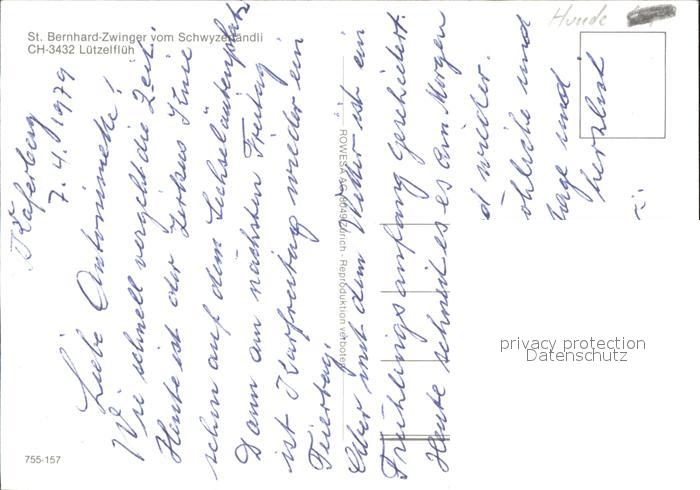 St. Bernhard-Zwinger vom Schwyzerhändli
CH-3432 Lützelflüh
Hunde
Käferberg
7. 4. 1979
Liebe Antoinette!
Wie schnell vergeht die Zeit.
Heute ist der Zirkus Knie
schon auf dem Sechseläutenplatz
Dann am nächsten Freitag
ist Karfreitag wieder ein
Feiertag.
Aber mit dem Wetter ist ein
Frühlingsanfang gescheitert.
Heute schneit es es am Morgen
d wieder.
öhliche und
tage und
herzlist
ROWESA AG, 8049 Zürich - Reproduktion verboten
privacy protection
Datenschutz
755-157